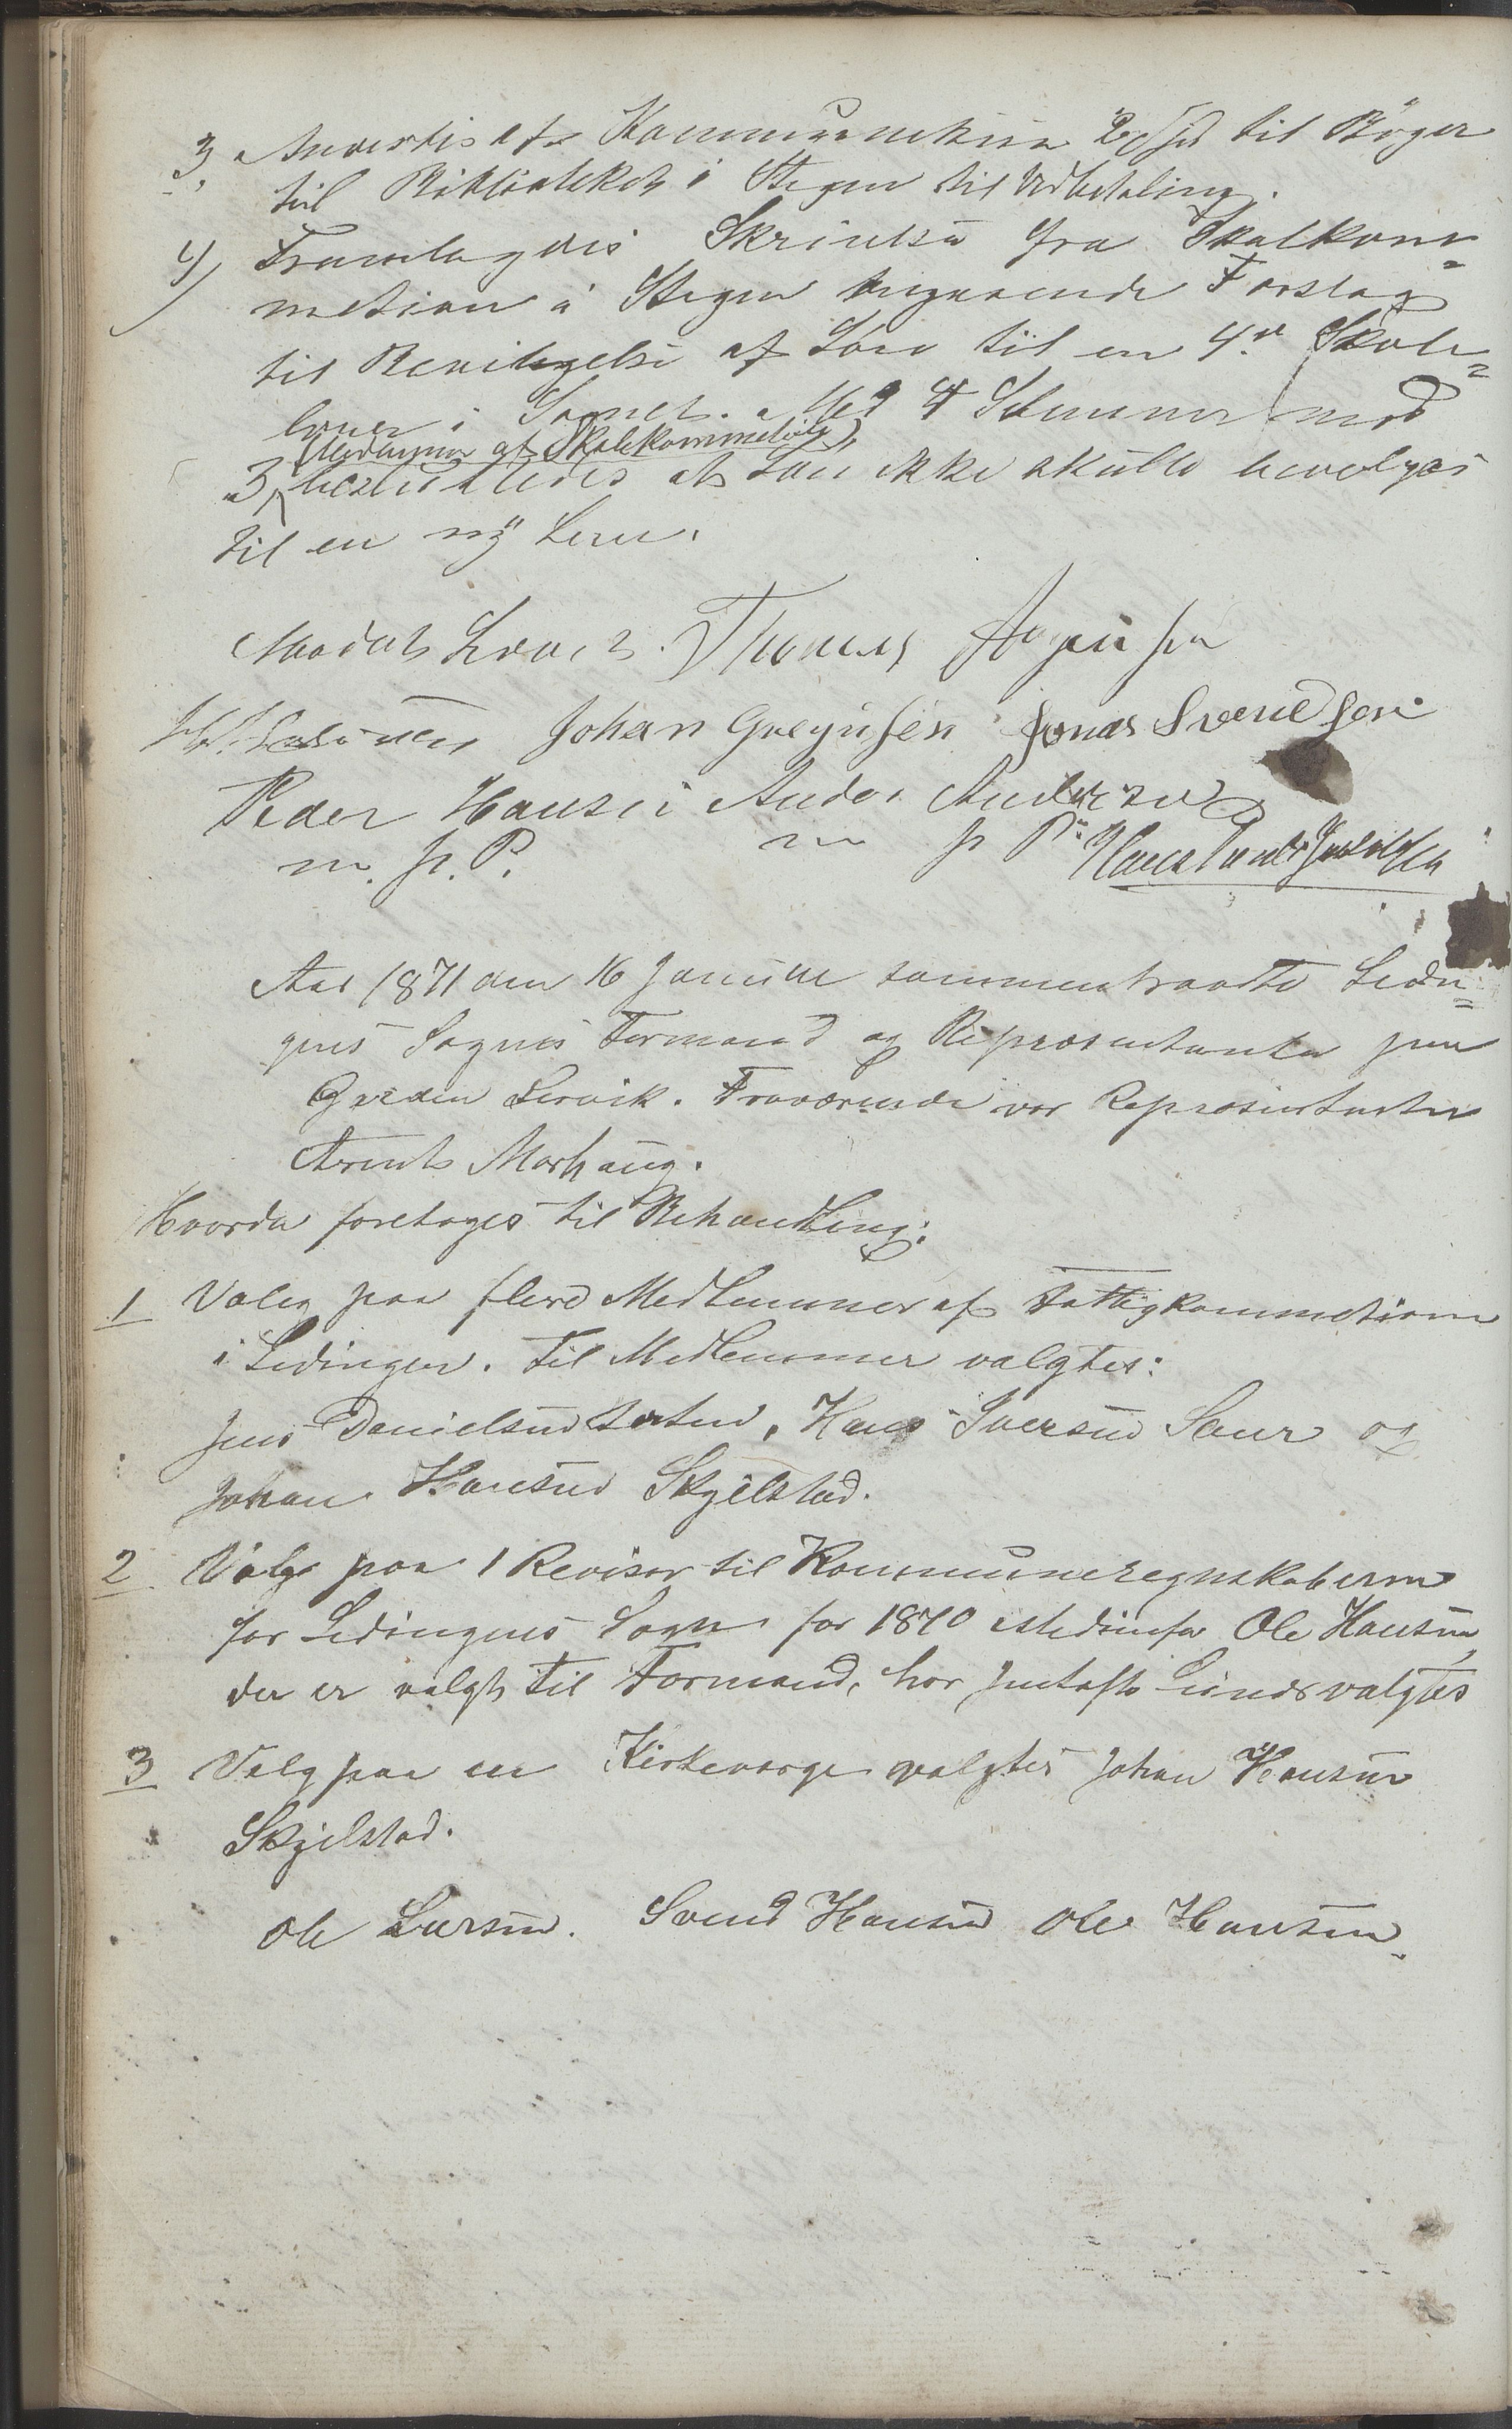 3, Anvistes af Kommunekassen 20 Spd til Bøger
til Bibliotheket i Stegen til Udbetaling.
4) Fremlagdes Skrivelse fra Skolkom=
metion i Stegen angaaende Forslag
til Bevilgelse af Løn til en 4de Skole=
lærer i Sognet. Med 4 Stemmer mod
(Medlemmer af Skolekommetion)
3, besluttedes at Løn ikke skulle bevelges
til en ny Lærer.
Thomas
Johan Greger sen Jonas Svendsen
Peder Hansen Andor Andersen
m. p. P. m p P. Hans
Aar 1871 den 16 Januar sammentraadte Lødin=
gens Sogns Formand og Representanter paa
Gaarden Lervik. Fraværende var Representanten
Arent Morhaug.
Hvorda foretoges til Behandling:
1 Valg paa flere Medlemmer af Fattigkommetionen
i Ledingen. Til Medlemmer valgtes:
Jens Danielsen, Hans Iversen Saur og
Johan Hansen Skjelstad.
2 Valg paa 1 Revisor til Kommuneregnskaberne
for Ledingens Sogn for 1870 istedenfor Ole Hansen
der er valgt til Formand, hertil valgtes
3 Valg paa en Kirkeværge valgtes Johan Hansen
Skjelstad.
Ole Larsen. Svend Hansen Ole Hansen